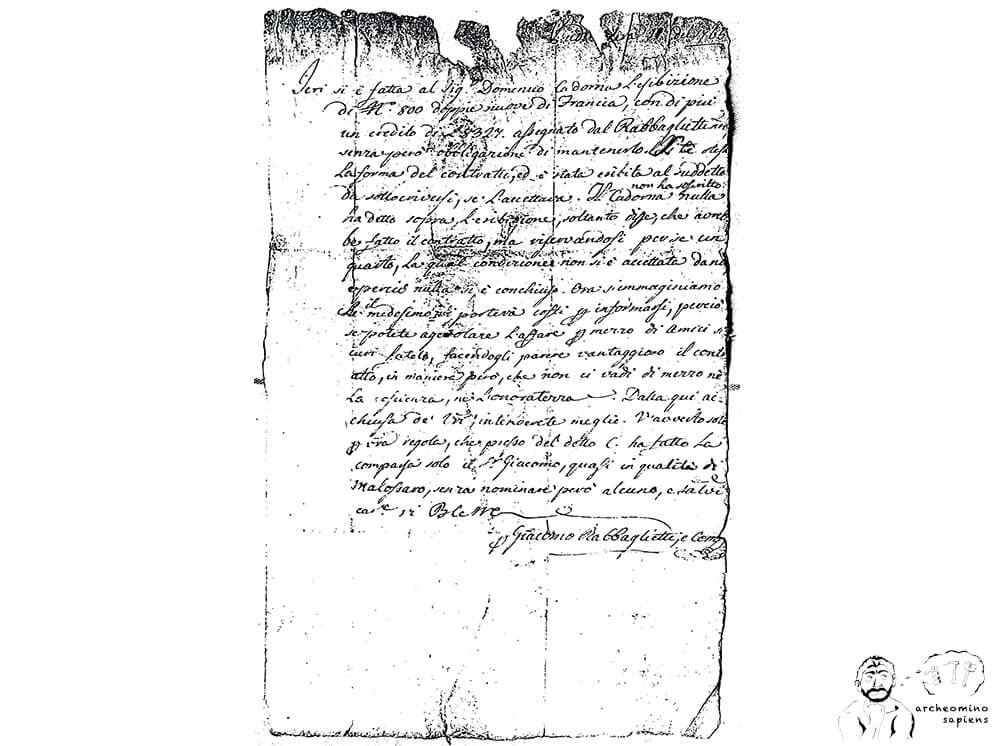 Jeri si è fatta al Sig.r Domenico Cadorna L'esibizione
di N.o 800 doppie nuove di Francia, con di piú
un credito di 8327. assegnato dal Rabbaglietti
senza però obbligazione di mantenerlo.
La forma del contratto, ed è stata esibita al suddetto
da sottoscriversi, se L'accettava. Il Cadorna non ha soscritto nulla
ha detto sopra L'esibizione, soltanto disse, che avreb
be fatto il contratto, ma riservandosi per se un
quarto, La qual condizione non si è accettata da noi
e perciò nulla si è conchiuso. Ora s'immaginiamo
che il medesimo si porterà costì per informarsi, perciò
se potete agevolare L'affare per mezzo di Amici si
curi fatelo, facendogli parere vantaggioso il contr
atto, in maniera però, che non ci vadi di mezzo né
La coscienza, né L'onoratezza. Dalla qui ac
chiusa de' intenderete meglio. V'avverto solo
per vra regola, che presso del detto C. ha fatto La
comparsa solo il Sr Giacomo, quasi in qualità di
Malossaro, senza nominare però alcuno, e
Giacomo Rabbaglietti, e Comp
archeomino
sapiens